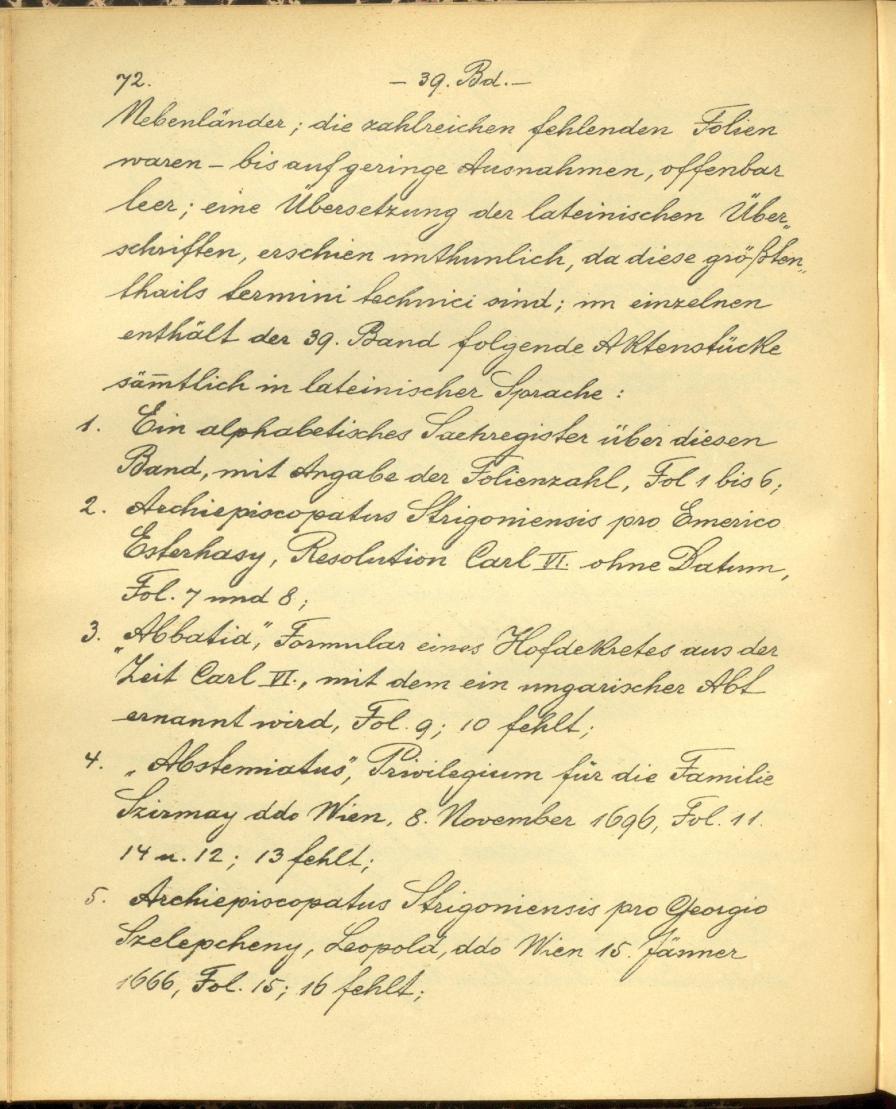 72. – 39. Bd. –
Nebenländer; die zahlreichen fehlenden Folien
waren – bis auf geringe Ausnahmen, offenbar
leer; eine Übersetzung der lateinischen Über„
schriften, erschien unthunlich, da diese größten„
thails termini technici sind; im einzelnen
enthält der 39. Band folgende Aktenstücke
säm̄tlich in lateinischer Sprache:
1. Ein alphabetisches Sachregister über diesen
Band, mit Angabe der Folienzahl, Fol 1 bis 6;
2. Archiepiscopatus Strigoniensis pro Emerico
Esterhasy, Resolution Carl VI. ohne Datum,
Fol. 7 und 8;
3. „Abbatia“, Formular eines Hofdekretes aus der
Zeit Carl VI., mit dem ein ungarischer Abt
ernannt wird, Fol. 9; 10 fehlt;
4. „Abstemiatus“, Privilegium für die Familie
Szirmay ddo Wien, 8. November 1696, Fol. 11.
14 u. 12; 13 fehlt;
5. Archiepiscopatus Strigoniensis pro Georgio
Szelepcheny, Leopold, ddo Wien 15. Jänner
1666, Fol. 15; 16 fehlt;